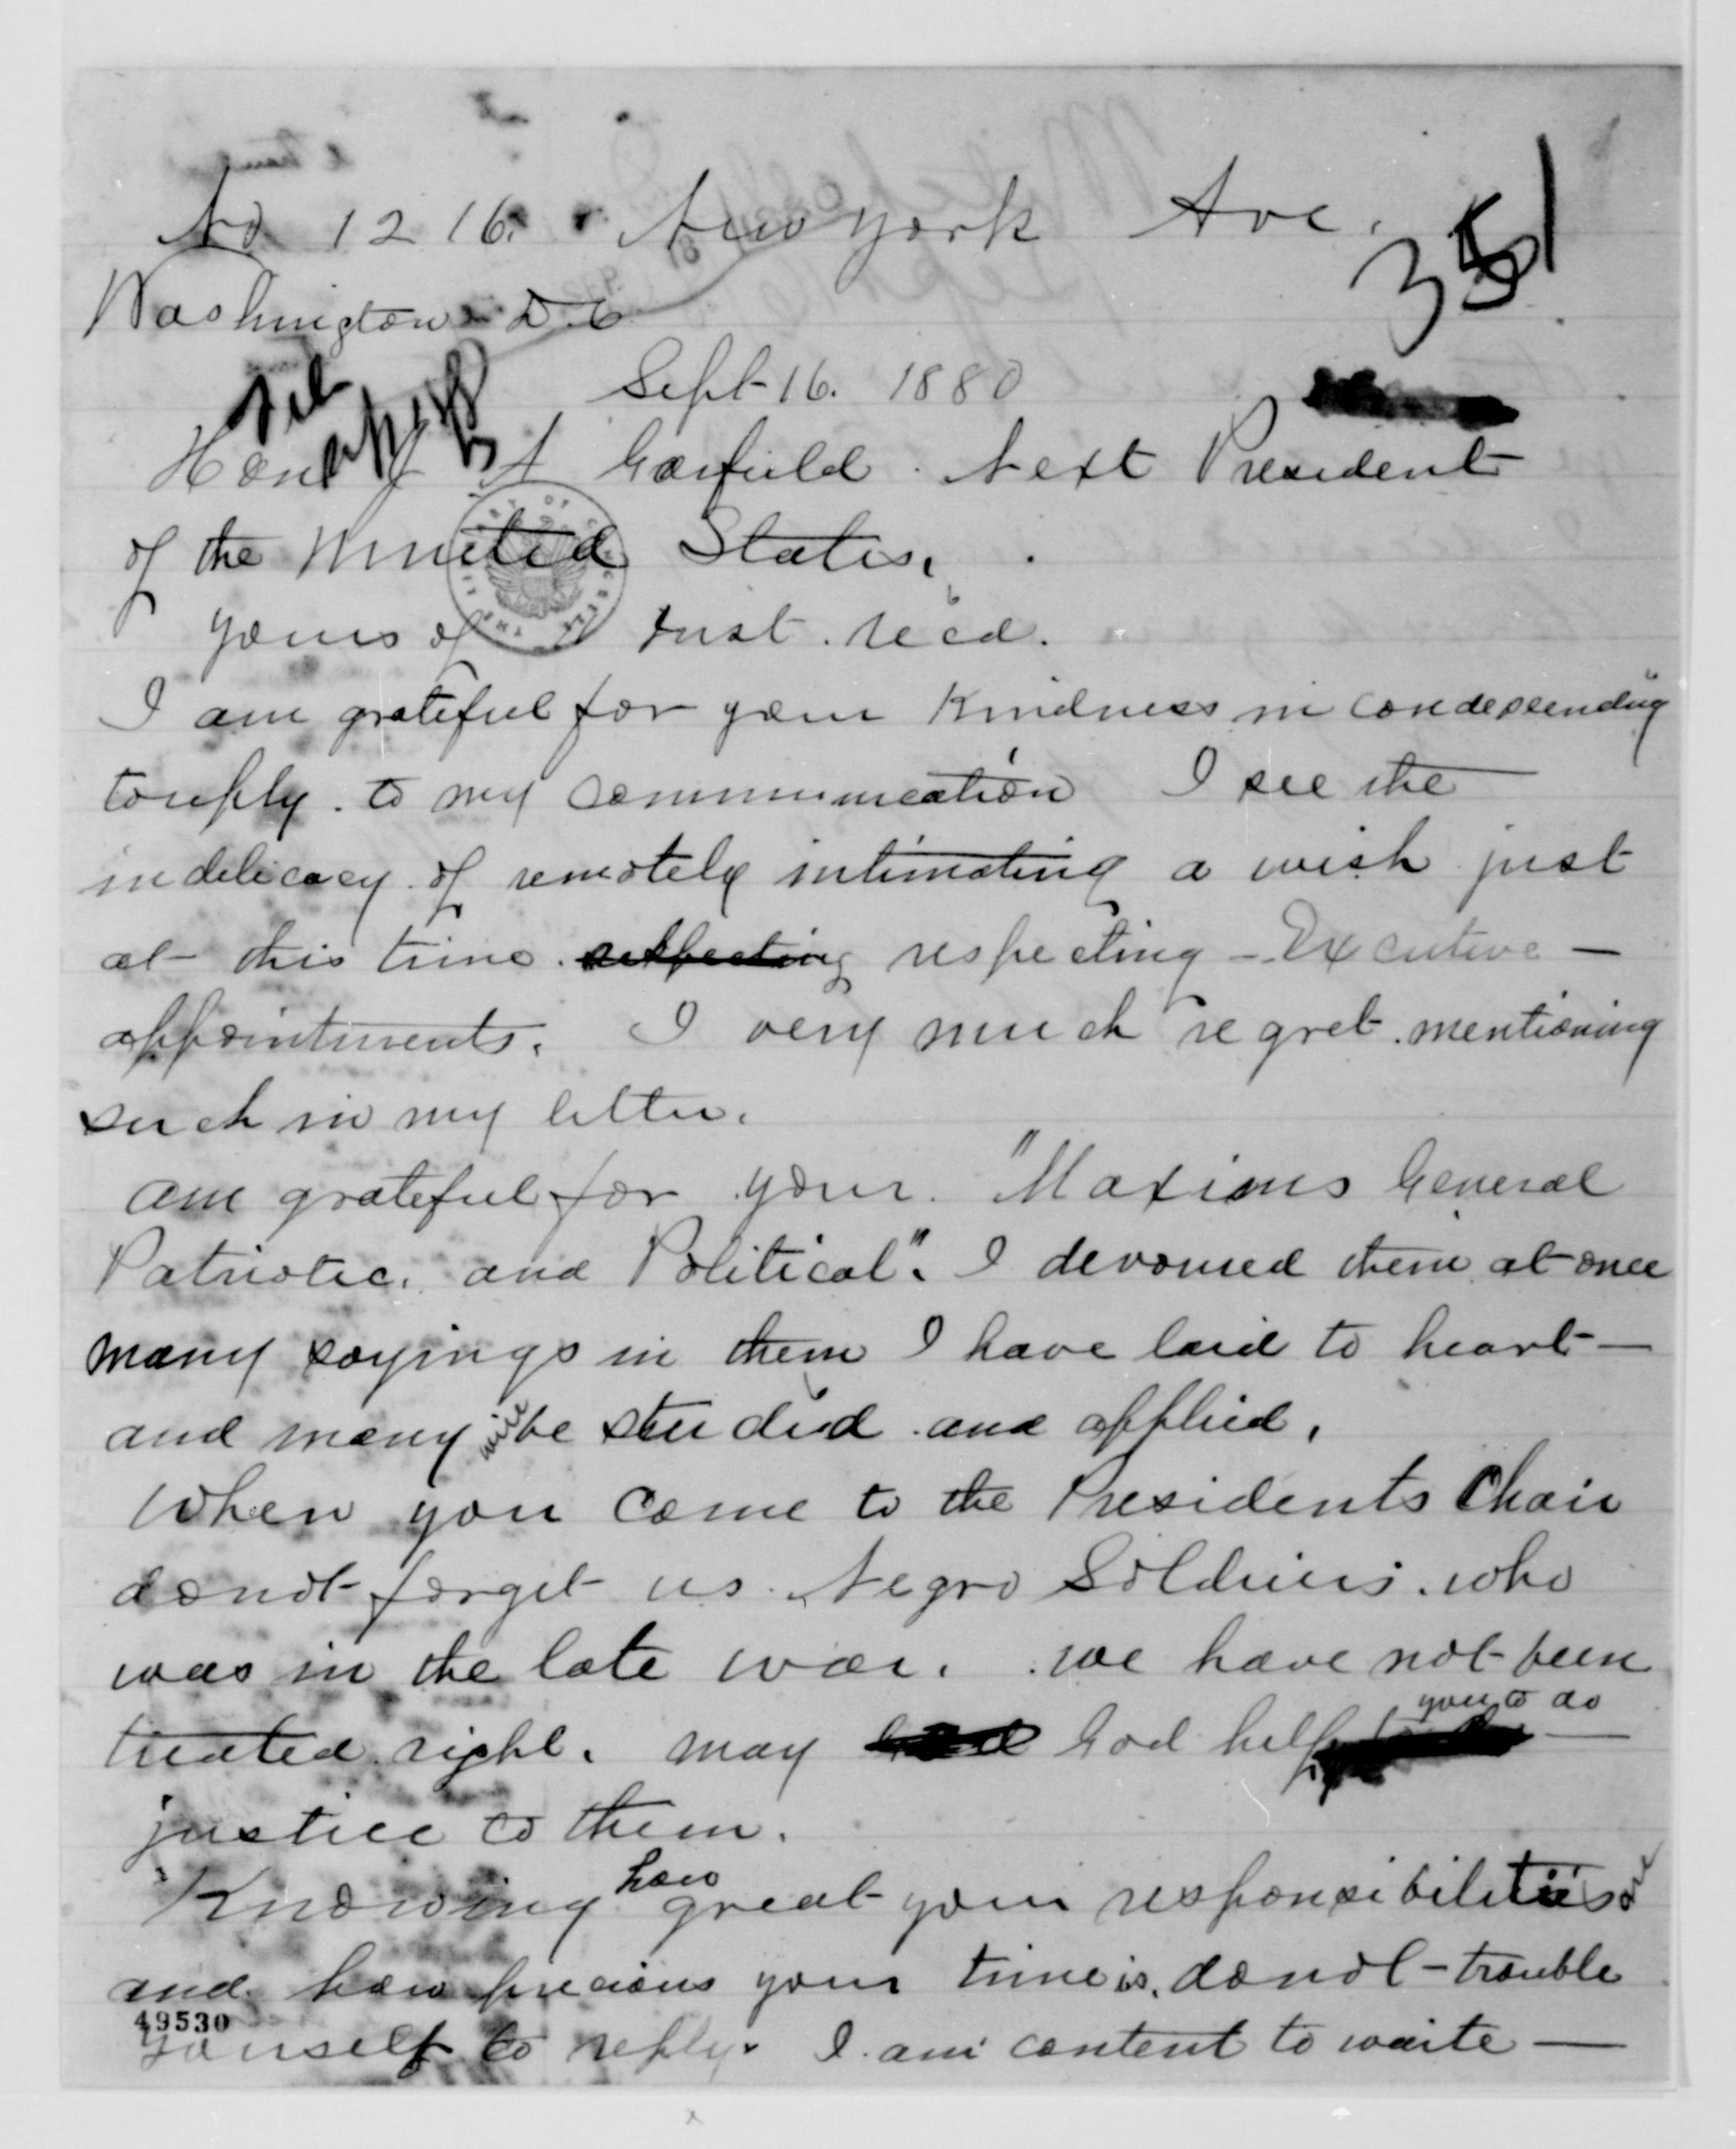 No 1216. New York Ave.
351
Washington D.C.
Sept 16. 1880
Hon J A Garfield. Next President
of the United States.
yours of Inst. recd.
I am grateful for your Kindness in condescending
to reply. to my communication I see the
indelicacy of remotely intimating a wish just
at this time. respecting respecting - Executive —
appointments. I very much regret. mentioning
such in my letter.
am grateful for your. "Maxims General
Patriotic, and Political". I devoured them at once
many sayings in them I have laid to heart —
and many will be studied and applied.
When you come to the Presidents Chair
donot forget us Negro Soldiers. who
was in the late war. we have not been
treated right. may God help you to do —
justice to them.
Knowing how great your responsibilities are
and how precious your time is, donot - trouble
49530
yourself to reply. I am content to waite —